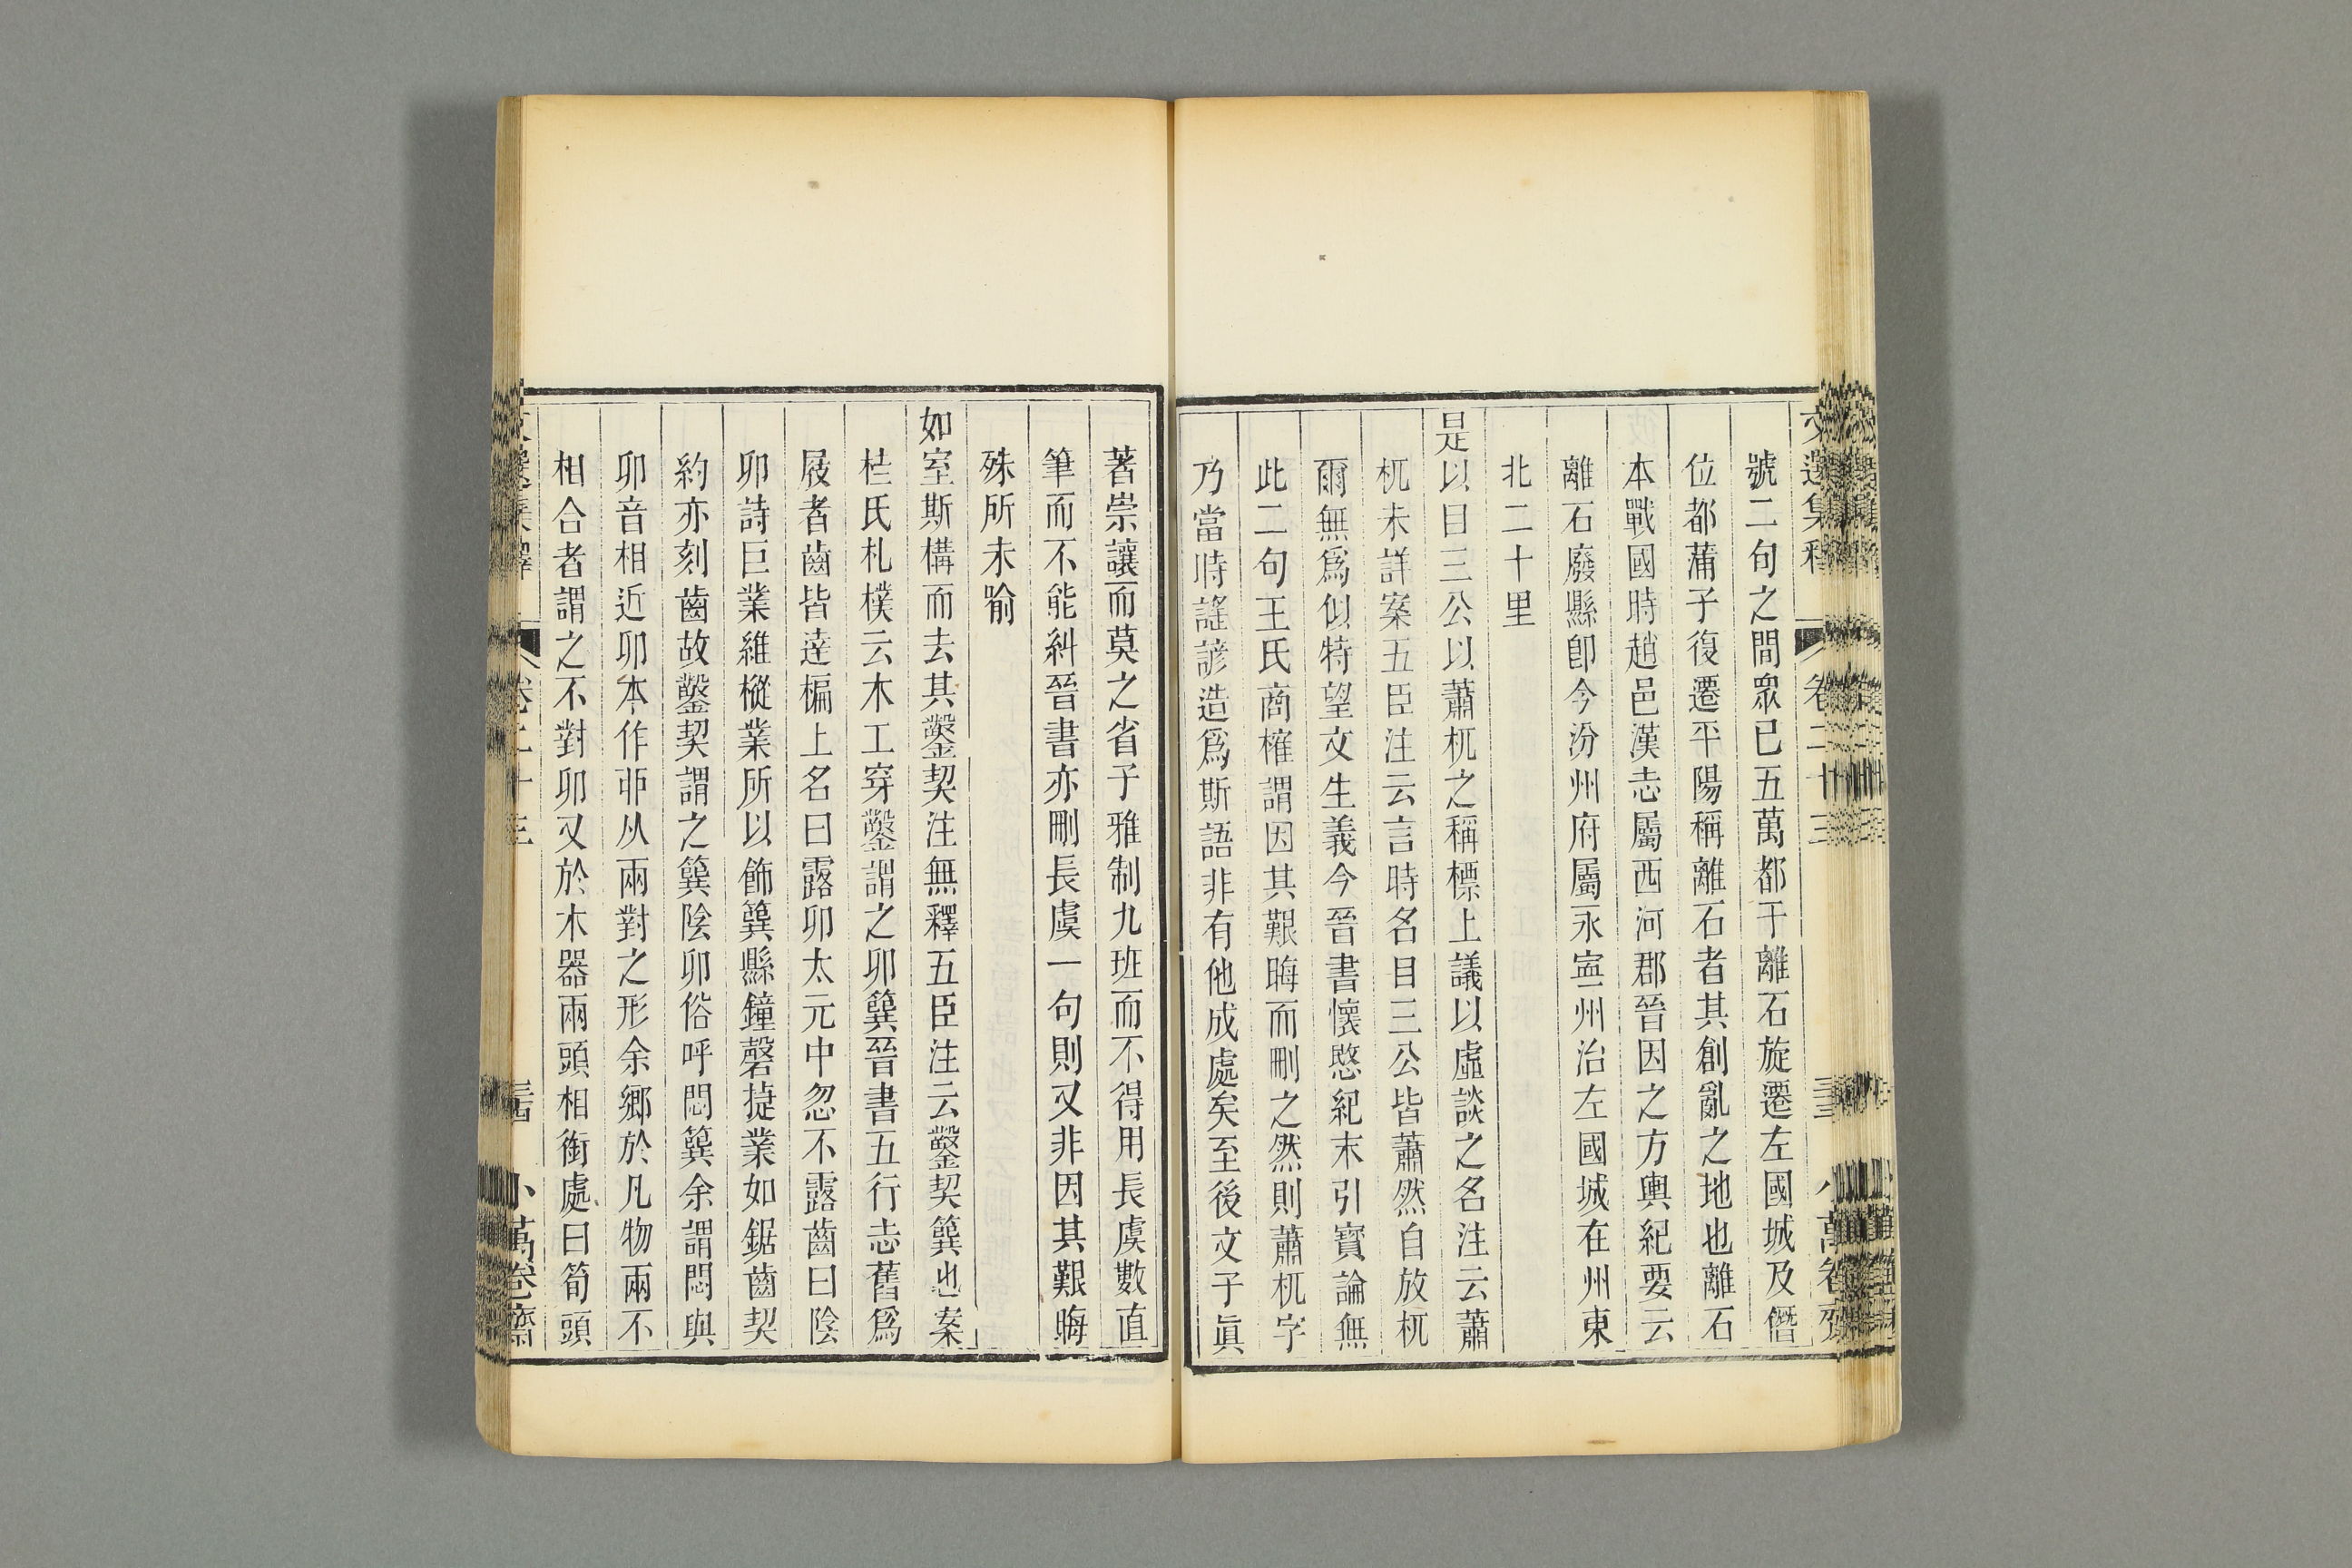 號二旬之間眾已五萬都于離石旋遷左國城及僭
位都蒲子復遷平陽稱離石者其創亂之地也離石
本戰國時趙邑漢志屬西河郡晉因之方輿紀要云
離石廢縣卽今汾州府屬永寧州治左國城在州東
北二十里
是以目三公以蕭杌之稱標上議以虛談之名注云蕭
杌未詳案五臣注云言時名目三公皆蕭然自放杌
爾無爲似特望文生義今晉書懷愍紀末引寶論無
此二句王氏商榷謂因其艱晦而刪之然則蕭杌字
乃當時謠諺造爲斯語非有他成處矣至後文子眞
著崇讓而莫之省子雅制九班而不得用長虞數直
筆而不能糾晉書亦刪長虞一句則又非因其艱晦
殊所未喻
如室斯構而去其鑿契注無釋五臣注云鑿契䈇也案
桂氏札樸云木工穿鑿謂之卯䈇晉書五行志舊爲
屐者齒皆達楄上名曰露卯太元中忽不露齒曰陰
卯詩巨業維樅業所以飾簨縣鐘磬捷業如鋸齒契
約亦刻齒故鑿契謂之簨陰卯俗呼悶簨余謂悶與
卯音相近卯本作戼从兩對之形余鄉於凡物兩不
相合者謂之不對卯又於木器兩頭相銜處曰筍頭
卷二十三
三四
小萬卷齋